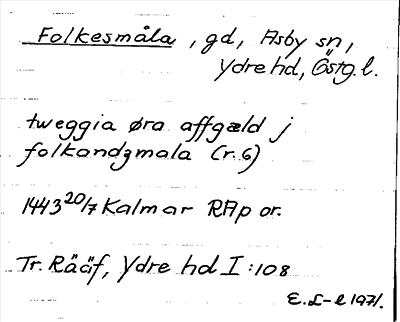 Folkesmåla, gd, Asby sn,
Ydre hd, Östg. l.
tweggia øra affgæld j
folkandzmala (r. 6)
1443 20/7 Kalmar RAp or.
Tr. Rääf, Ydre hd I:108
E.L-l 1971.